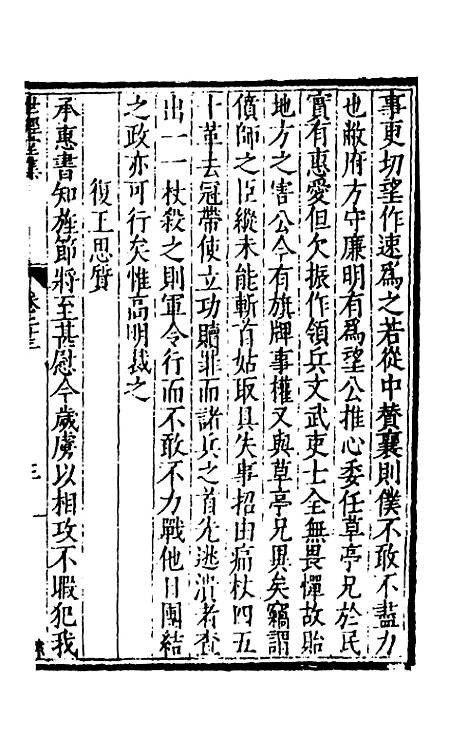 事更切望作速爲之若從中賛襄則僕不敢不盡力
也敝府方守廉明有爲望公推心委任草亭兄於民
實有惠愛但欠振作領兵文武吏士全無畏憚故貽
地方之害公今有旗牌事權又與草亭兄異矣竊謂
僨師之臣縱未能斬首姑取具失事招由痛杖四五
十革去冠帶使立功贖罪而諸兵之首先逃潰者查
出一一杖殺之則軍令行而不敢不力戰他日團結
之政亦可行矣惟高明裁之
復王思質
承惠書知旌節將至甚慰今歲虜以相攻不暇犯我
世經堂集
卷二十三
三